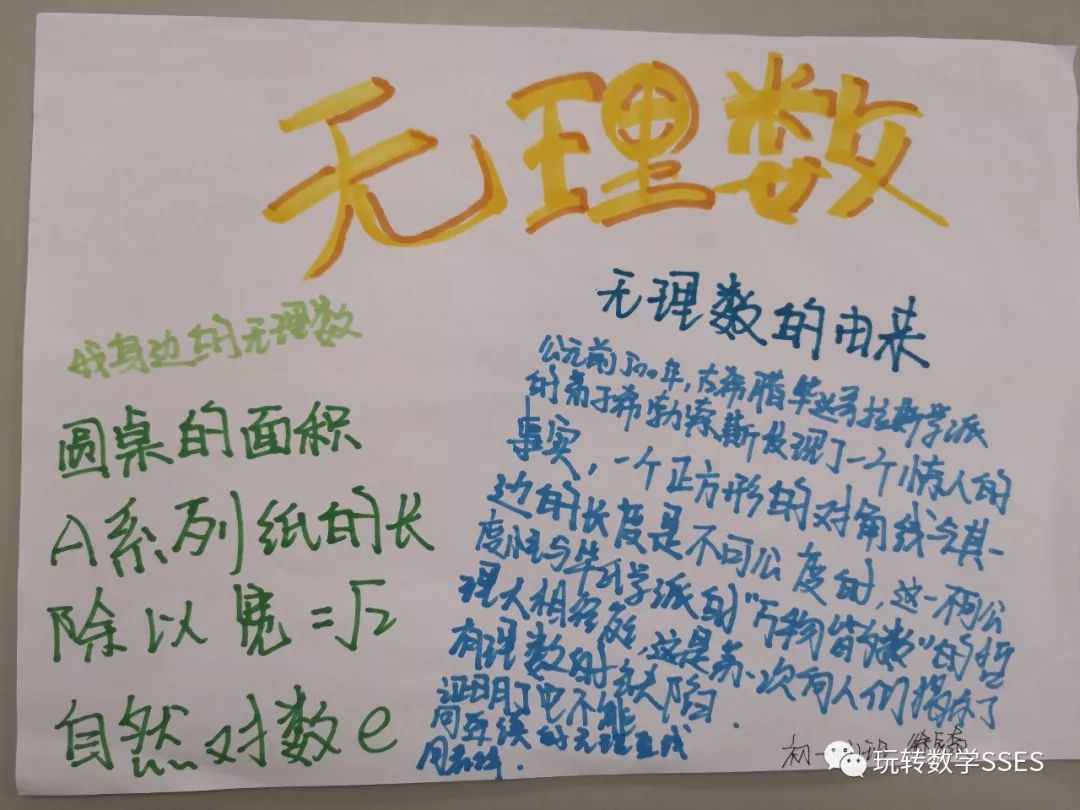 无理数
我身边的无理数
圆桌的面积
A系列纸的长
除以宽=√2
自然对数e
无理数的由来
公元前500年,古希腊毕达哥拉斯学派
的弟子希勃索斯发现了一个惊人的
事实,一个正方形的对角线与其一
边的长度是不可公度的,这一不可公
度性与毕氏学派的"万物皆为数"的哲
理大相径庭,这是第一次向人们揭示了
有理数的缺陷.
证明了它不能
同连续的无理直线
初一
玩转数学SSES